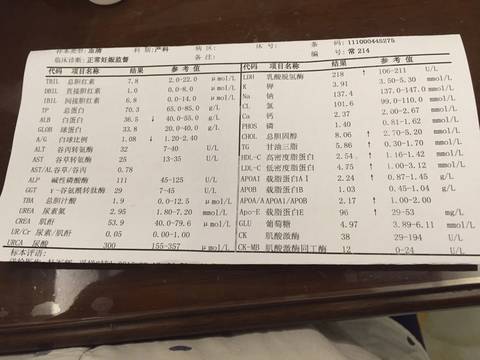 标本类型: 血清 科 别: 产科 病 区: 床 号: 条 码: 111000445275
临床诊断: 正常妊娠监督 备 注: 编 号: 常 214
代码 项目名称 结果 参 考 值
TBIL 总胆红素 7.8 2.0-22.0 μmol/L
DBIL 直接胆红素 1.0 0.0-8.0 μmol/L
IBIL 间接胆红素 6.8 0.0-14.0 μmol/L
TP 总蛋白 70.3 65.0-85.0 g/L
ALB 白蛋白 36.5 ↓ 40.0-55.0 g/L
GLOB 球蛋白 33.8 20.0-40.0 g/L
A/G 白球比例 1.08 ↓ 1.20-2.40
ALT 谷丙转氨酶 32 7-40 U/L
AST 谷草转氨酶 25 13-35 U/L
AST/AL 谷草/谷丙 0.78
ALP 碱性磷酸酶 111 45-125 U/L
GGT r-谷氨酰转肽酶 29 7-45 U/L
TBA 总胆汁酸 1.9 0.0-12.5 μmol/L
UREA 尿素氮 2.95 1.80-7.20 mmol/L
CREA 肌酐 53.9 40.0-79.6 μmol/L
UR/Cr 尿素/肌酐 0.05 0.00-1.00
URCA 尿酸 300 155-357 μmol/L
标本评语:
代码 项目名称 结果 参 考 值
LDH 乳酸脱氢酶 218 ↑ 106-211 U/L
K 钾 3.91 3.50-5.30 mmol/L
Na 钠 137.4 137.0-147.0 mmol/L
CL 氯 101.6 99.0-110.0 mmol/L
Ca 钙 2.37 2.00-2.67 mmol/L
PHOS 磷 1.40 0.81-1.62 mmol/L
CHOL 总胆固醇 8.06 ↑ 2.70-5.20 mmol/L
TG 甘油三脂 5.86 ↑ 0.30-1.70 mmol/L
HDL-C 高密度脂蛋白 2.54 ↑ 1.16-1.42 mmol/L
LDL-C 低密度脂蛋白 4.75 ↑ 1.00-3.12 mmol/L
APOAI 载脂蛋白A I 2.24 ↑ 0.87-1.45 g/L
APOB 载脂蛋白B 1.03 0.45-1.04 g/L
APOA/A APOAI/APOB 2.17 ↑ 1.00-2.00
Apo-E 载脂蛋白E 96 ↑ 29-53 mg/L
GLU 葡萄糖 4.97 3.89-6.11 mmol/L
CK 肌酸激酶 38 29-194 U/L
CK-MB 肌酸激酶同工酶 12 0-24 U/L